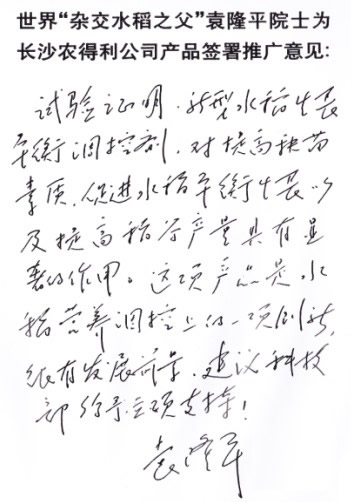 世界“杂交水稻之父”袁隆平院士为
长沙农得利公司产品签署推广意见:
试验证明，新型水稻生长
平衡调控剂，对提高秧苗
素质，促进水稻平衡生长以
及提高稻谷产量具有显
著的作用。这项产品是水
稻营养调控上的一项创新，
很有发展前景，建议科技
部给予立项支持！
袁隆平